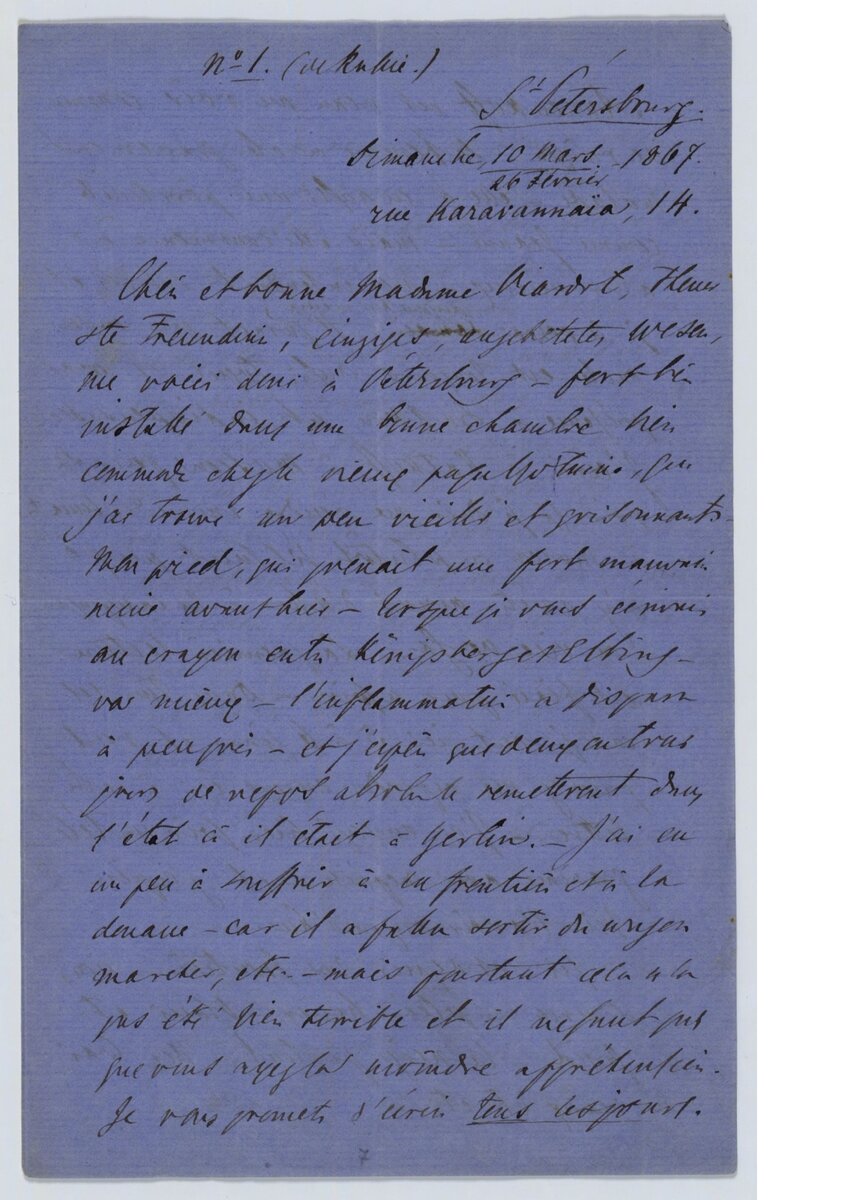 Nº 1. (de Russie.)
St Pétersbourg.
Dimanche, 10 Mars 1867.
26 Février
rue Karavannaïa, 14.
Chère et bonne Madame Viardot, theuer
ste Freundinn, einziges, angebetetes Wesen,
me voici donc à Pétersbourg – fort bien
installé dans une bonne chambre bien
commode chez le vieux papa Botkine, que
j'ai trouvé un peu vieilli et grisonnant –
Mon pied, qui prenait une fort mauvaise
mine avant hier – lorsque je vous écrivais
au crayon entre Königsberg et Elbing –
va mieux – l'inflammation a disparu
à peu près – et j'espère que deux ou trois
jours de repos absolu le remettront dans
l'état où il était à Berlin. – J'ai eu
un peu à souffrir à la frontière et à la
douane – car il a fallu sortir du wagon
marcher, etc. – mais pourtant cela n'a
pas été bien terrible et il ne faut pas
que vous ayez la moindre appréhension.
Je vous promets d'écrire tous les jours.
7